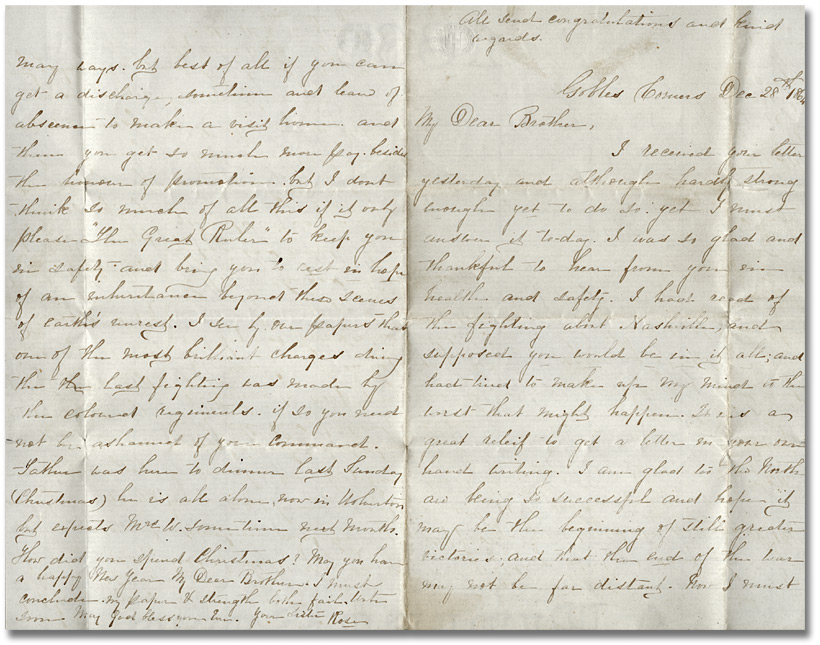 All send congratulations and kind
regards.
Gobles Corners Dec 28th 1864
My Dear Brother,
I received your letter
yesterday and although hardly strong
enough yet to do so yet I must
answer it to-day. I was so glad and
thankful to hear from you in
health and safety. I had read of
the fighting about Nashville, and
supposed you would be in it all, and
had tried to make up my mind to the
worst that might happen. It was a
great releif to get a letter in your own
hand writing. I am glad to the North
are being so successful and hope it
may be the beginning of still greater
victories and that the end of the war
may not be far distant. Now I must
may ways. but best of all if you can
get a discharge, sometime and leave of
absence to make a visit home. and
then you get so much more pay. besides
the honour of promotion. but I dont
think so much of all this if it only
please "The Great Ruler" to keep you
in safety and bring you to rest in hope
of an inheritance beyond these scenes
of earth's unrest. I see by our papers that
one of the most brilliant charges during
the the last fighting was made by
the coloured regiments. if so you need
not be ashamed of your command.
Father was here to dinner last Sunday
(Christmas) he is all alone now in Wolverton
but expects Mrs W. sometime next month.
How did you spend Christmas? May you have
a happy New Year My Dear Brother. I must
conclude my paper & strength both fail. Write
soon May God bless you. Your sister Rose